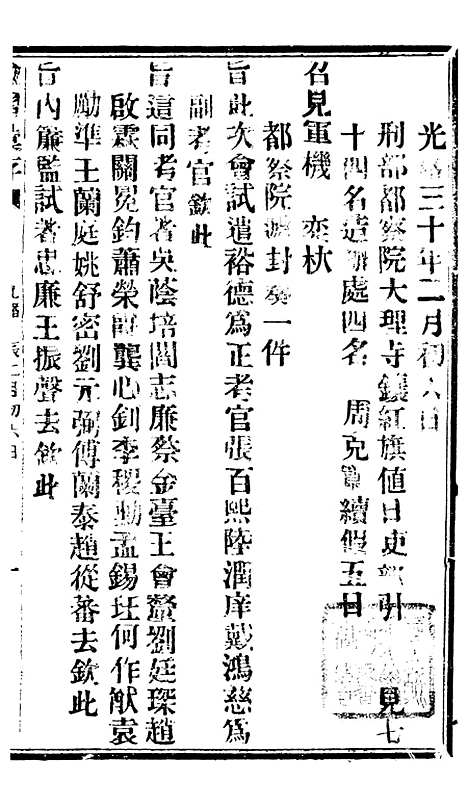 光緒三十年二月初六日
刑部都察院大理寺鑲紅旗值日吏部引 見七
十四名造辦處四名 周克寬續假五日
召見軍機 奕杕
都察院遞封奏一件
旨此次會試遣裕德為正考官張百熙陸潤庠戴鴻慈為
副考官欽此
旨這同考官著吳蔭培閻志廉蔡金臺王會釐劉廷琛趙
啟霖關冕鈞蕭榮爵龔心釗李稷勳孟錫玨何作猷袁
勵準王蘭庭姚舒密劉元弼傅蘭泰趙從蕃去欽此
旨內簾監試著忠廉王振聲去欽此